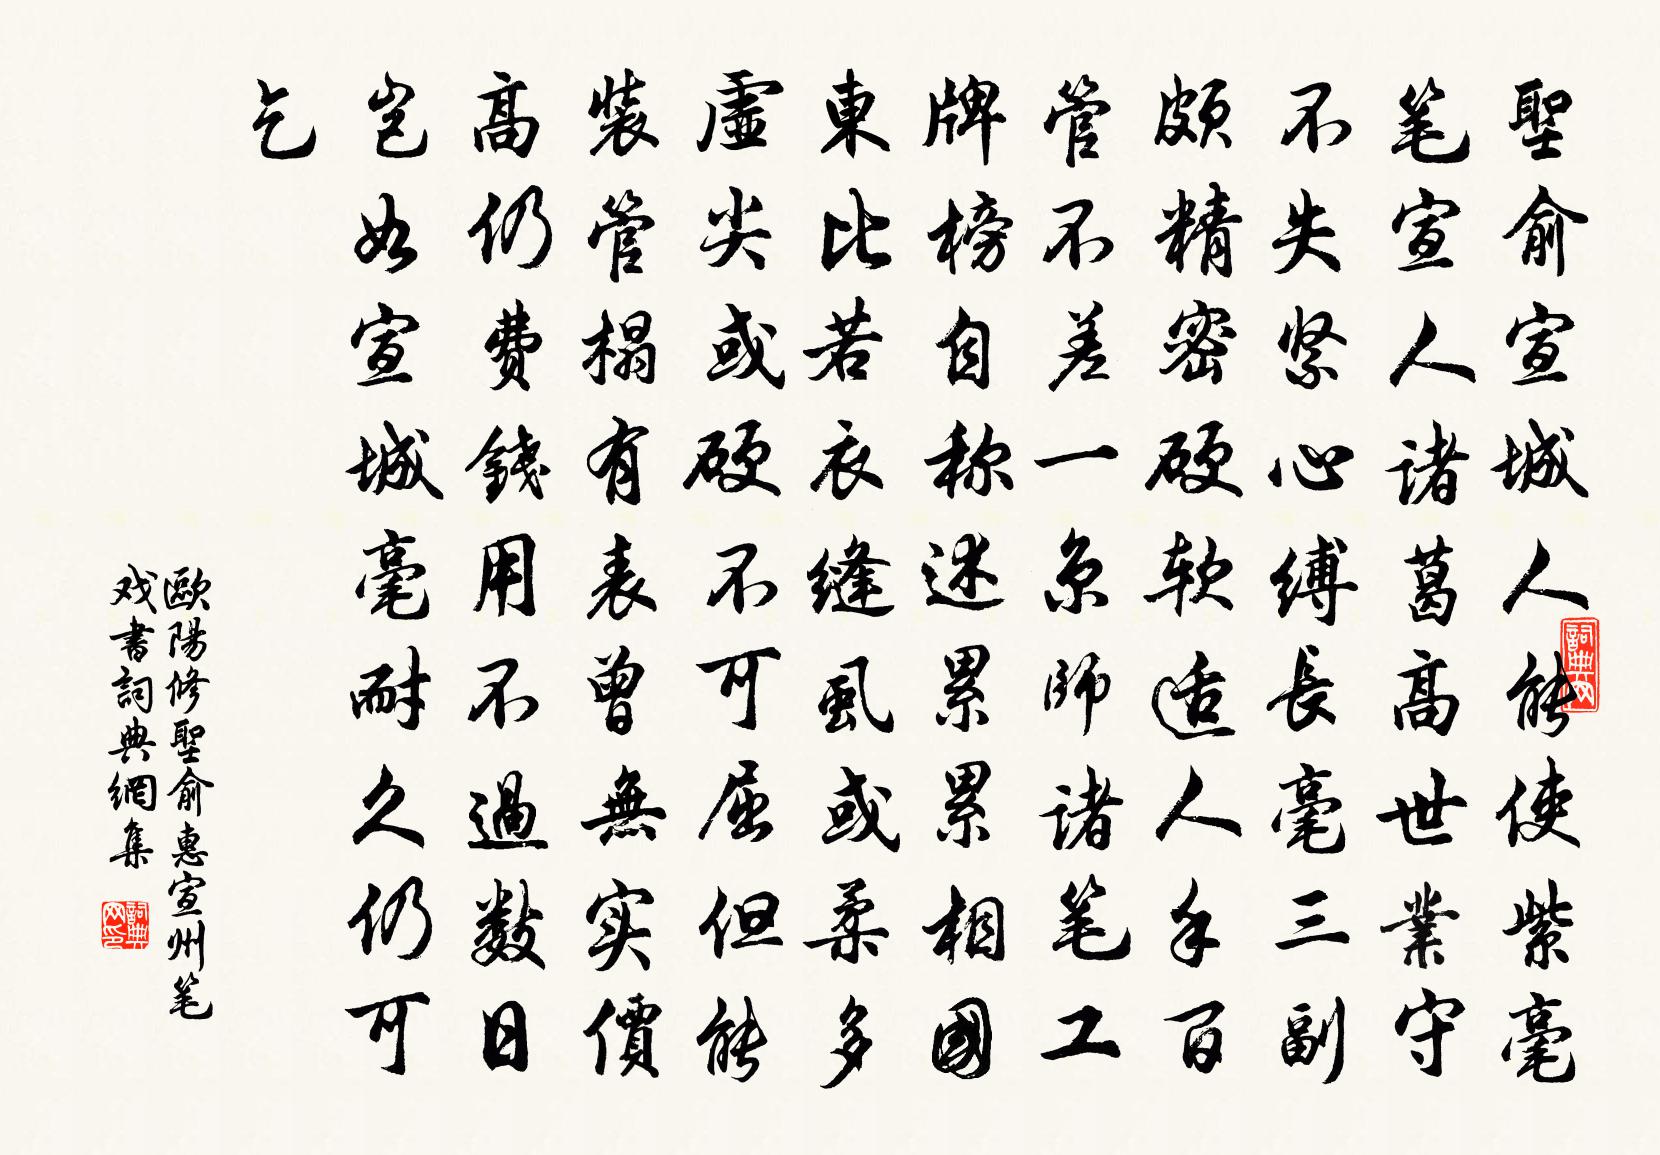 聖俞宣城人能使紫毫
笔宣人諸葛高世業守
不失紧心縛長毫三副
颇精密硬软适人手百
管不差一京師諸笔工
牌榜自称述累累相國
東比若衣缝虱或柔多
虛尖或硬不可屈但能
裝管榻有表曾無实價
高仍費錢用不過数日
岂如宣城毫耐久仍可
乞
歐陽修聖俞惠宣州笔
戏書詞典網集
詞典网
詞典网印